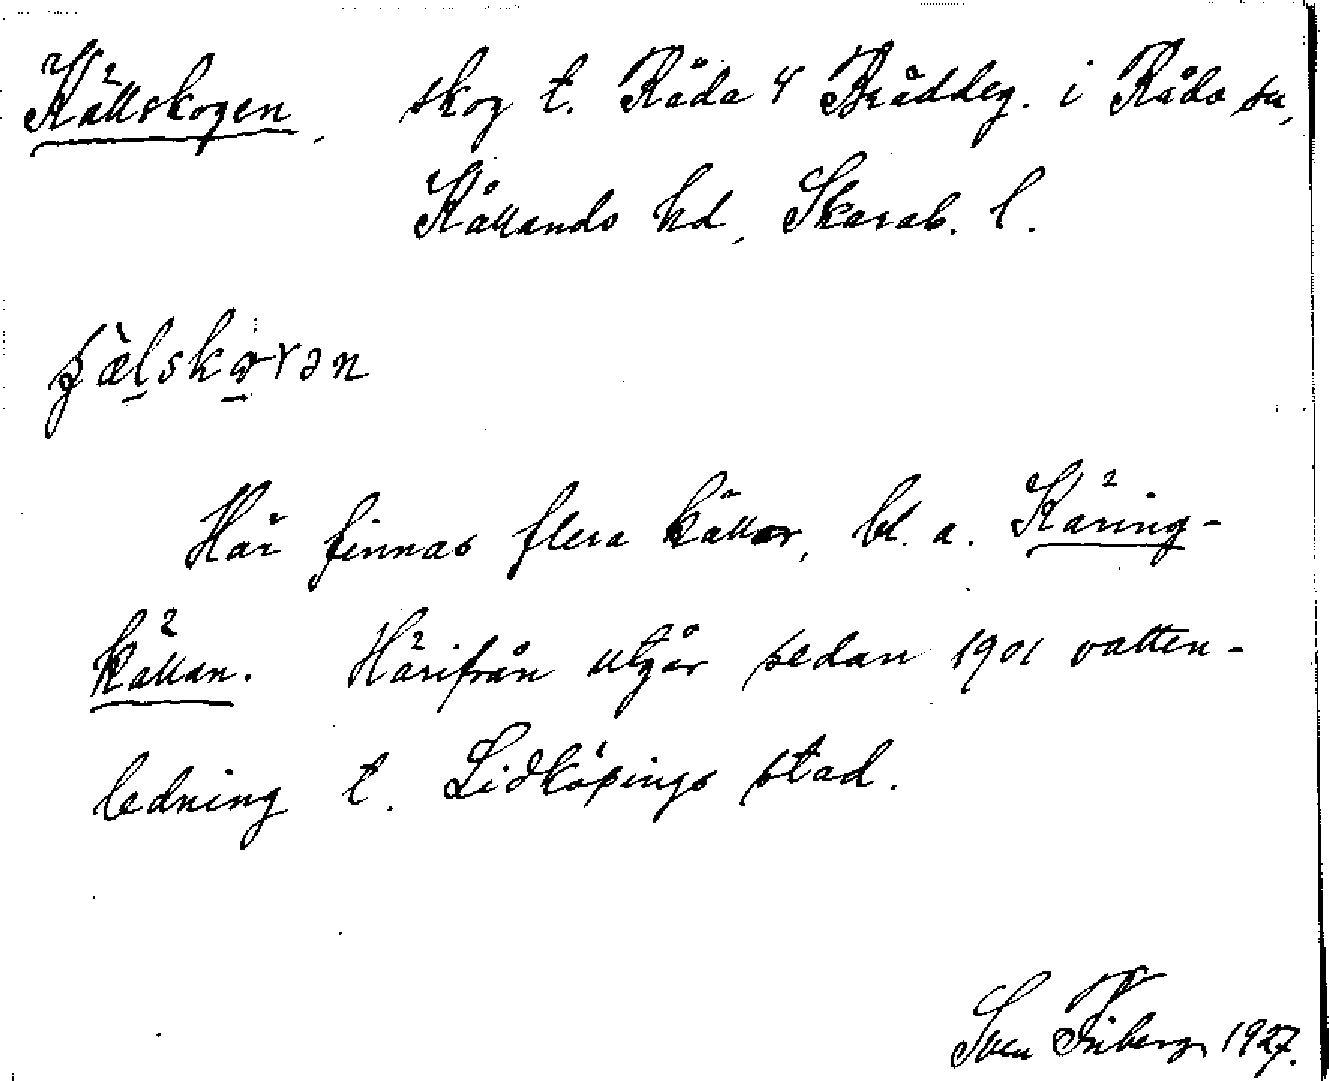 Källskogen, skog t. Råda 4 Bräddeg. i Råda sn,
Kållands hd, Skarab. l.
Här finnas flera källor, bl. a. Käring-
källan. Härifrån utgår sedan 1901 vatten-
ledning t. Lidköpings stad.
Sven Friberg 1927.